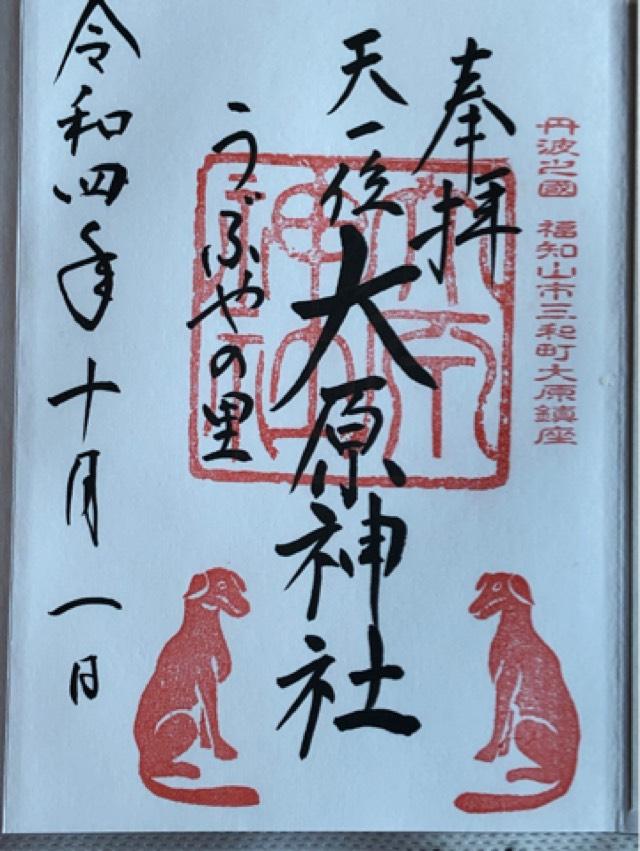 丹波之國 福知山市三和町大原鎮座
奉拝
天一位
大原神社
うぶやの里
令和四年十月一日